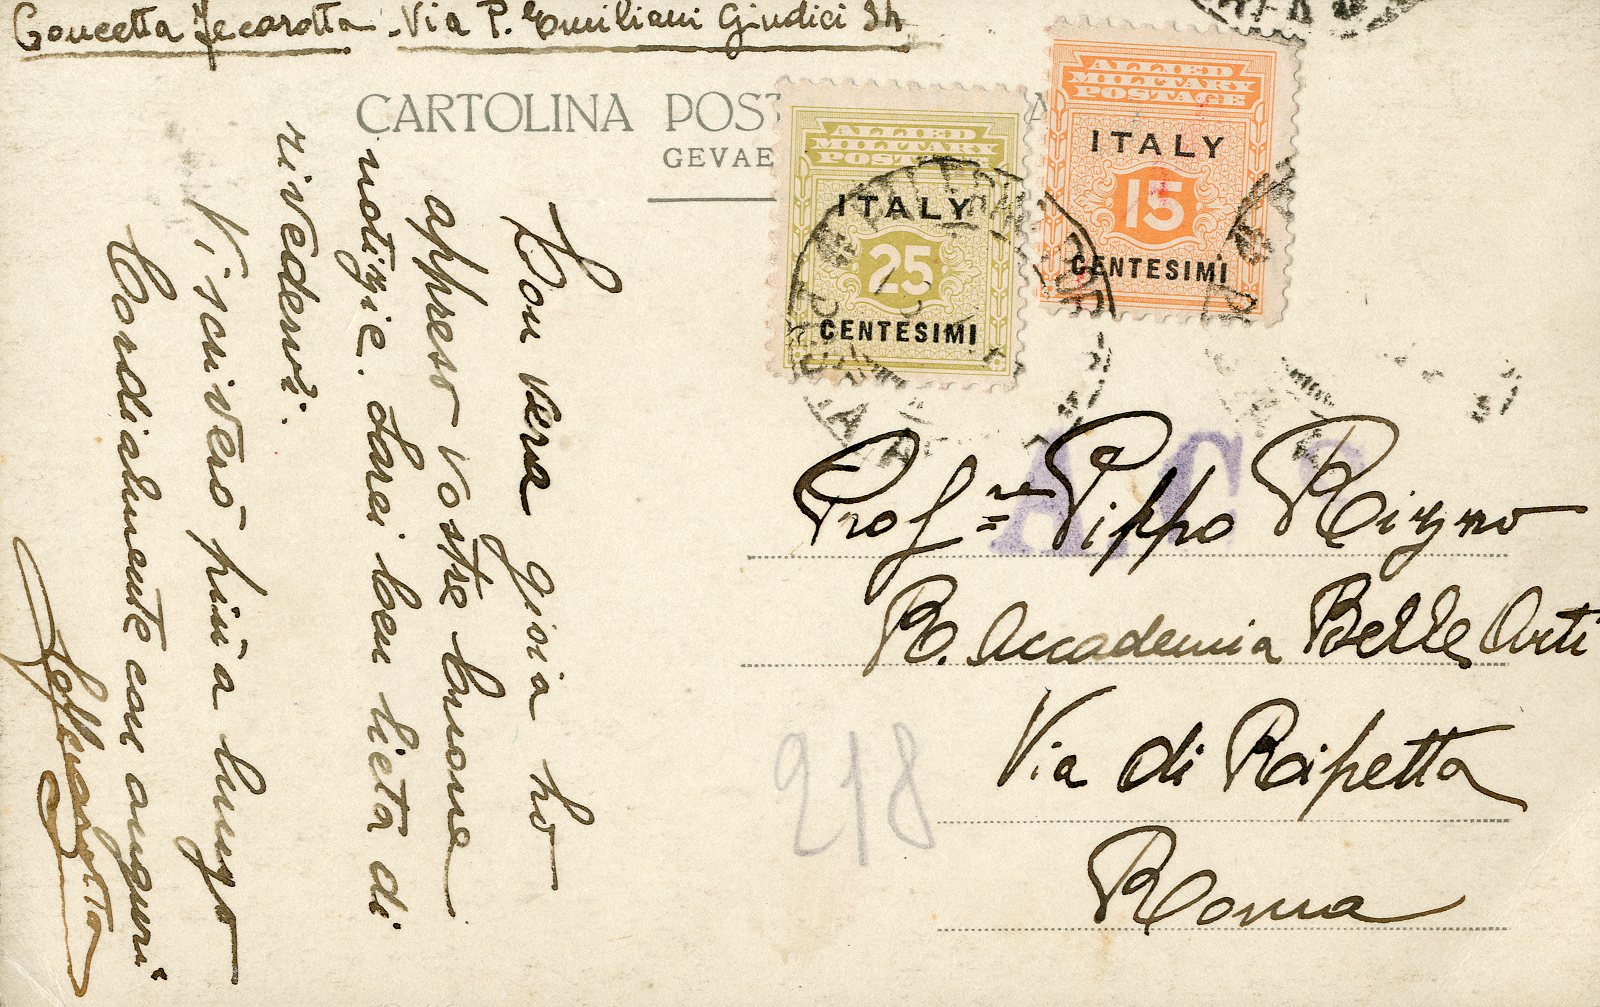 Concetta Jecarotta - Via P. Emiliani Giudici 34
CARTOLINA POST
GEVAE
ALLIED
MILITARY
POSTAGE
ITALY
25
CENTESIMI
ALLIED
MILITARY
POSTAGE
ITALY
15
CENTESIMI
Con vera gioia ho
appreso vostre buone
notizie. Sarei ben lieta di
rivedervi.
Vi scriverò più a lungo
Cordialmente con auguri
A.C.S
Prof.re Pippo Rizzo
R. Accademia Belle Arti
Via di Ripetta
Roma
918